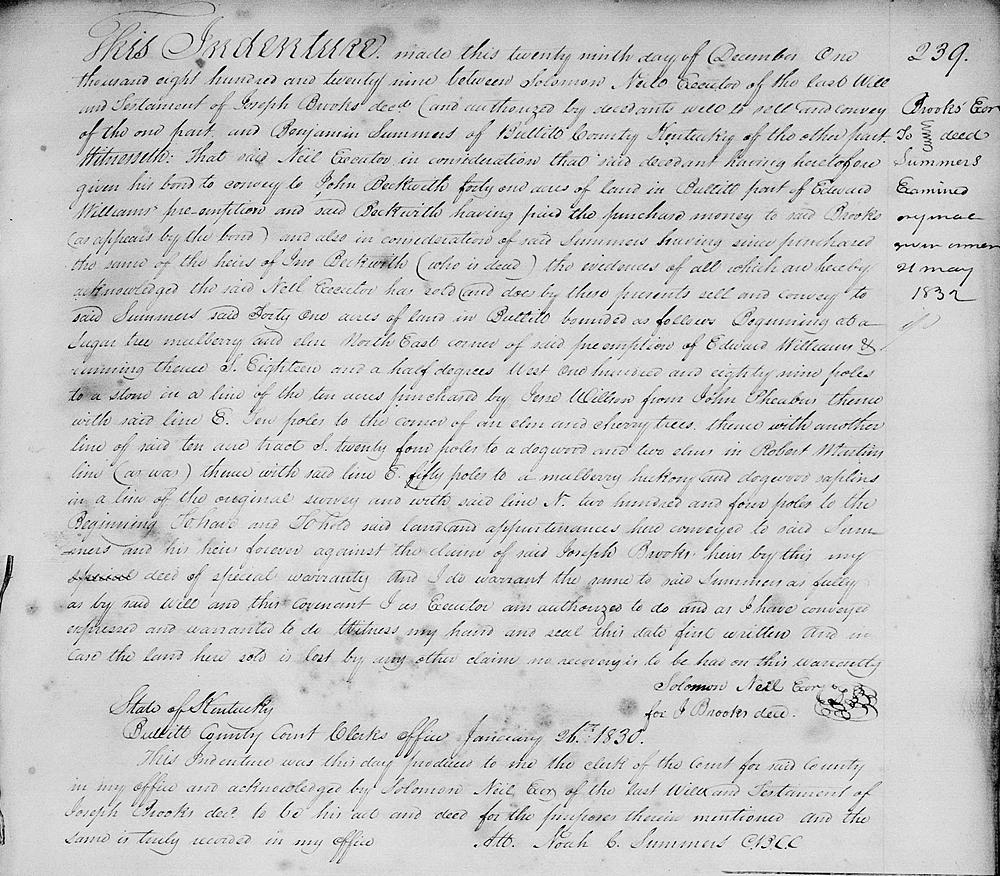 This Indenture made this twenty ninth day of December One
thousand eight hundred and twenty nine between Solomon Neill Executor of the last Will
and Testament of Joseph Brooks decd. (and authorized by decedants will to sell and convey
of the one part, and Benjamin Summers of Bullitt County Kentucky of the other part.
Witnesseth: That said Neil Executor in consideration that said decedant having heretofore
given his bond to convey to John Beckwith forty one acres of land in Bullitt part of Edward
Williams pre-emption and said Beckwith having paid the purchase money to said Brooks
(as appears by the bond) and also in consideration of said Summers having since purchased
the same of the heirs of Jno Beckwith (who is dead) the evidences of all which are hereby
acknowledged the said Neill Executor has sold (and does by these presents sell and convey to
said Summers said Forty One acres of land in Bullitt bounded as follows Beginning at a
Sugar tree mulberry and elm North East corner of said preemption of Edward Williams &
running thence S. Eighteen and a half degrees West One hundred and eighty nine poles
to a stone in a line of the ten acres purchased by Jesse Willson from John thence
with said line E. Ten poles to the corner of an elm and cherry trees. thence with another
line of said ten acre tract S. twenty four poles to a dogwood and two elms in Robert Martins
line (as was) thence with said line E. fifty poles to a mulberry hickory and dogwood saplins
in a line of the original survey and with said line N. two hundred and four poles to the
Beginning To have and To hold said land and appurtenances here conveyed to said Sum-
mers and his heirs forever against the claim of said Joseph Brooks heirs by this my
special deed of special warranty And I do warrant the same to said Summers as fully
as by said Will and this Covenant I as Executor am authorized to do and as I have conveyed
expressed and warranted to do Witness my hand and seal this date first written And in
Case the land here sold is lost by any other claim no recovery is to be had on this warrantly
Solomon Neill Exor
for J Brooks decd.
State of Kentucky
Bullitt County Court Clerks office January 26th. 1830.
This Indenture was this day produced to me the clerk of the Court for said County
in my office and acknowledged by Solomon Neil Exor of the last Will and Testament of
Joseph Brooks decd. to be his act and deed for the purposes therein mentioned and the
same is truly recorded in my office
Att. Noah C. Summers C.B.C.C
239.
Brooks Exor
To deed
Summers
Examined
original
given
21 may
1832